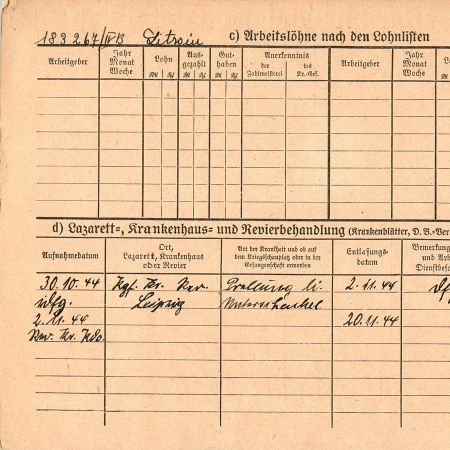 183267/IVB c) Arbeitslöhne nach den Lohnlisten
Arbeitgeber Jahr Monat Woche Lohn Ausgezahlt Guthaben Anerkenntnis Arbeitgeber Jahr Monat Woche
RM Rpf RM Rpf RM Rpf der Zahlmeisterei des Kr.-Gef.
d) Lazarett-, Krankenhaus- und Revierbehandlung (Krankenblätter, D. B.-Ver
Aufnahmedatum Ort, Lazarett, Krankenhaus oder Revier Art der Krankheit und ob auf dem Kriegsschauplatz oder in der Gefangenschaft erworben Entlassungsdatum Bemerkung und Arb Dienstbesch
30.10.44 Kgf. Kr. Rev. Prellung li. 2.11.44
Leipzig Unterschenkel
2.11.44 20.11.44
Rev. Kr. Kdo.